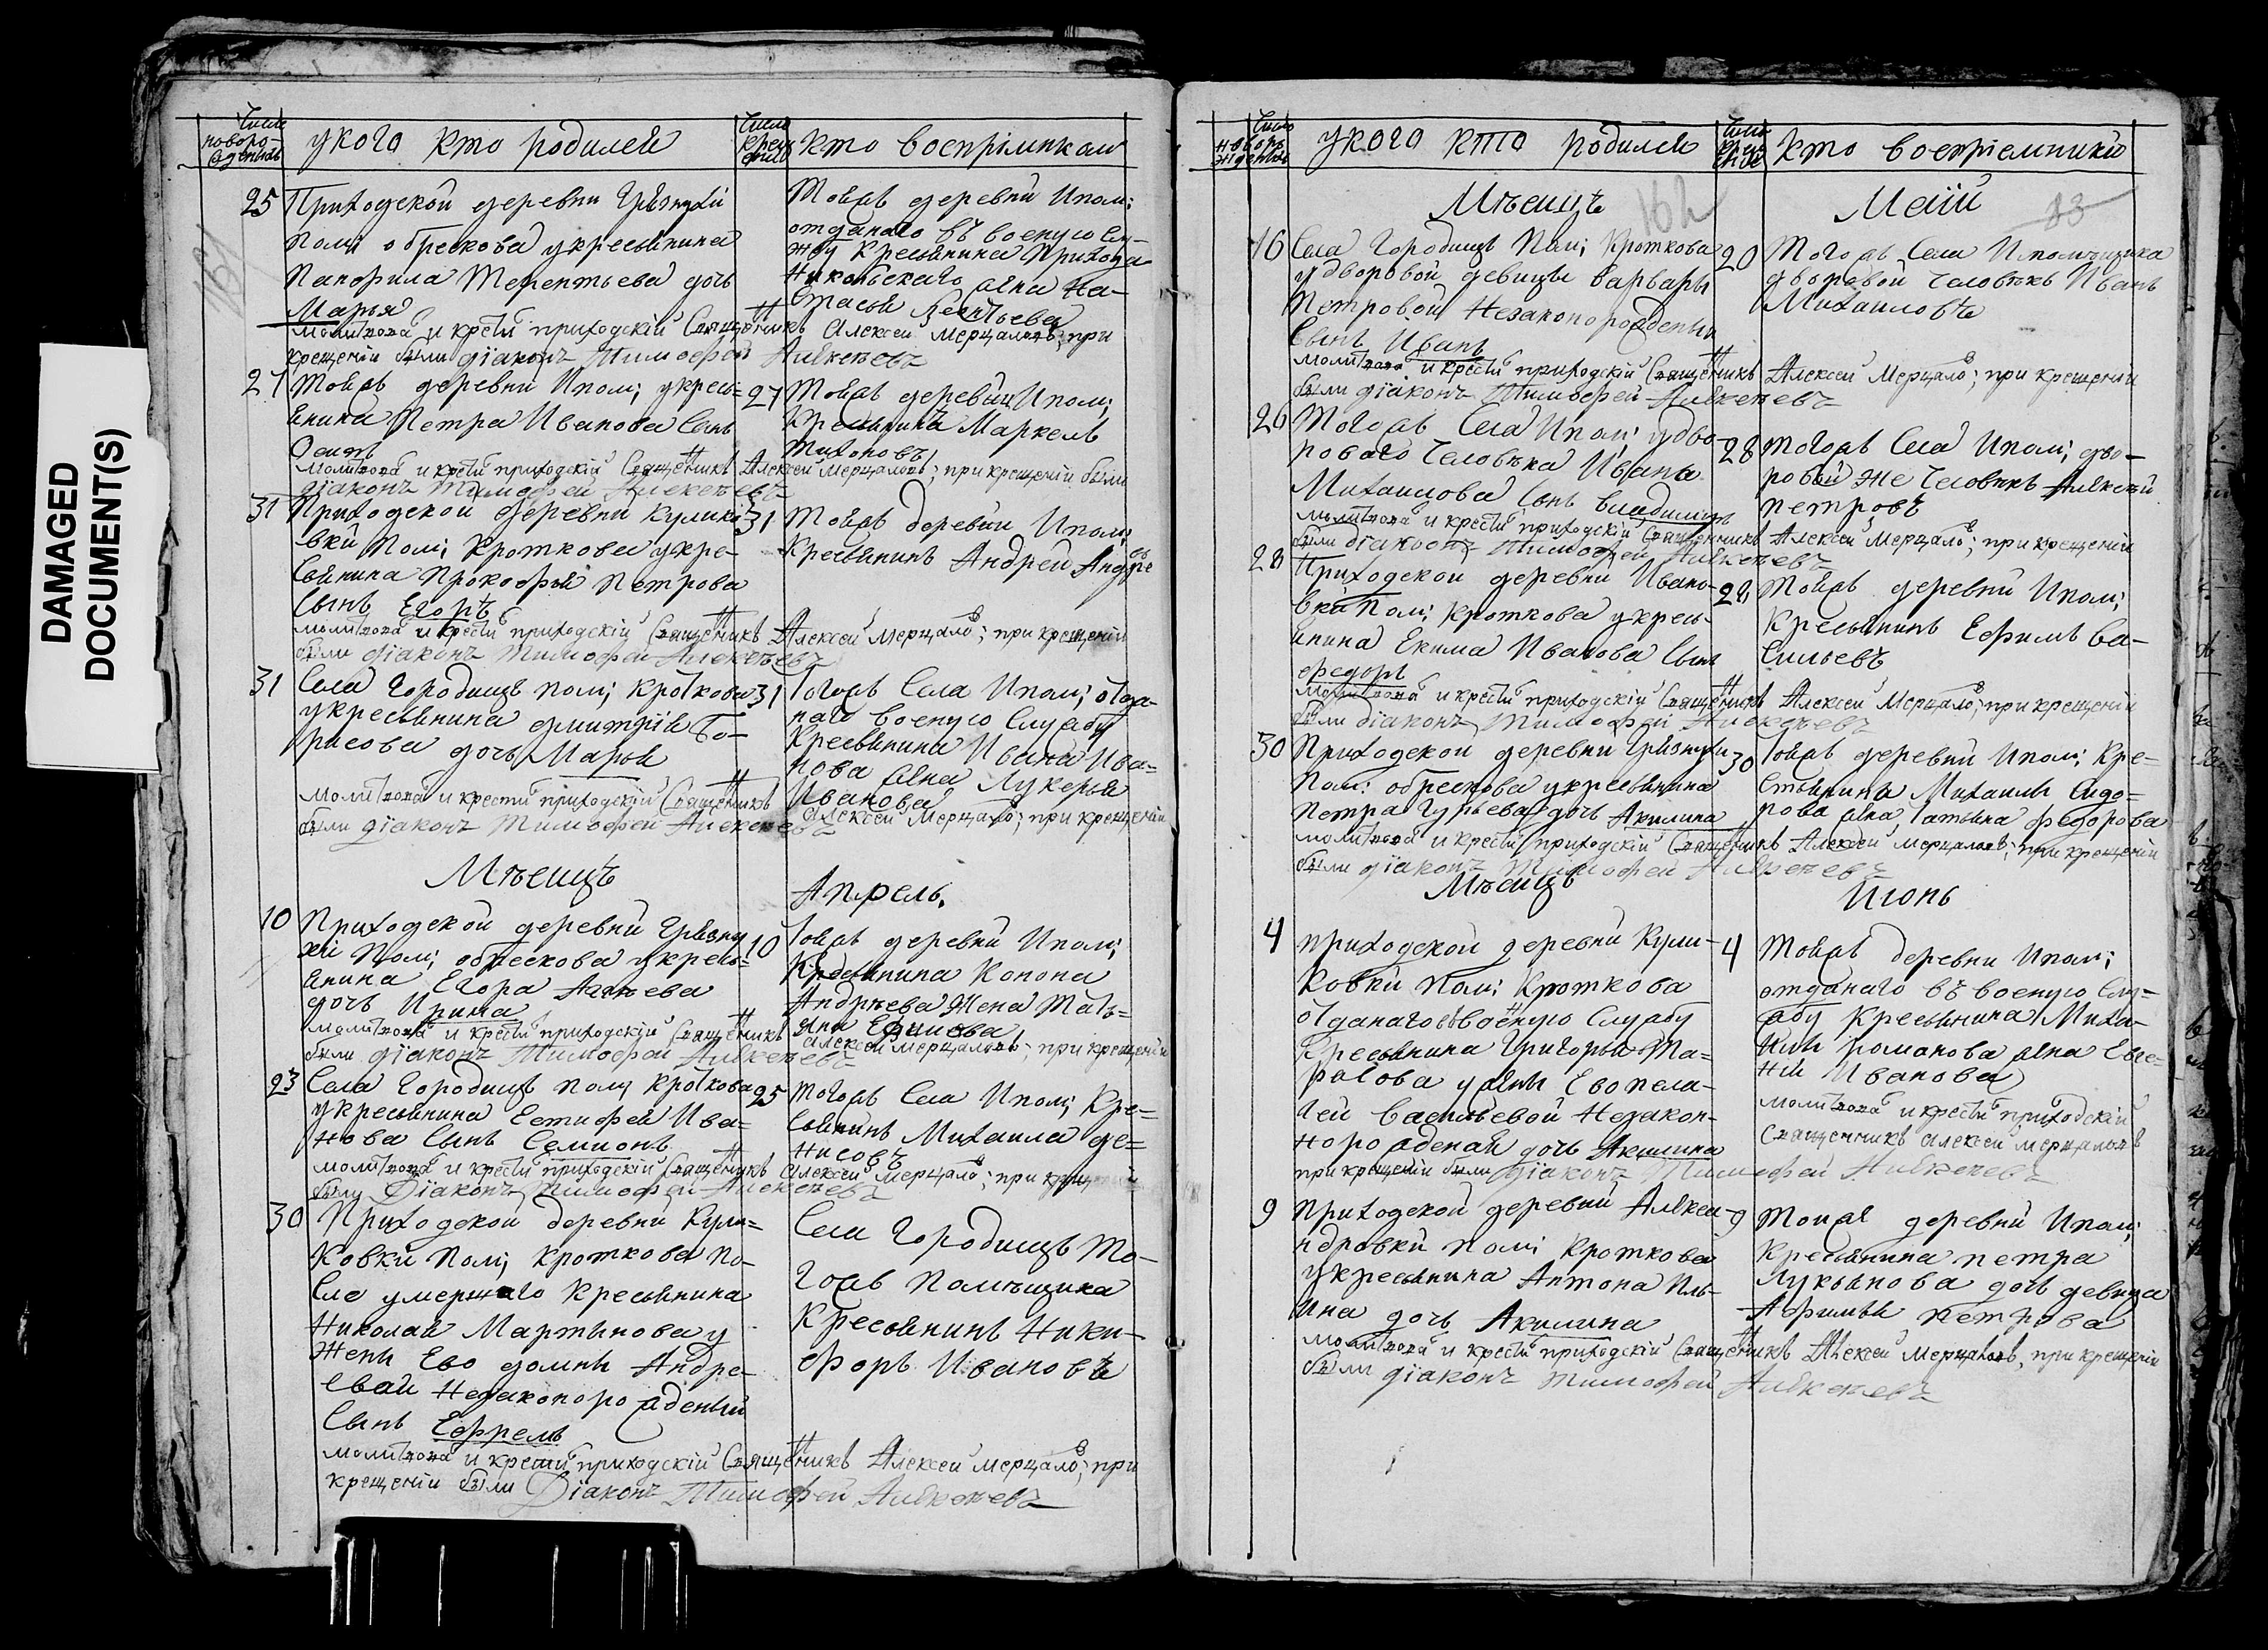 DAMAGED
DOCUMENT(S)
Число
новоро-
жденныхъ
у кого кто родилса
Число
крещ
ения
кто воспрiемникам
161
25 Приходской деревни Грязнухи
пом: обрескова укресьянина
Панфила Терентьева дочь
Марья
Тояжъ деревни и пом:
отданаго въ военую слу-
жбу Кресьянина Прихода
Никольскаго жена На-
стасья Леонтьева
молитвова и крести приходскiй Священникъ Алексеи Мерцаловъ; при
крещенiи были дiаконъ Тимофеи Алексеевъ
27 Тояжъ деревни и пом: укресь=
янина Петра Иванова сынъ
Осипъ
27 Тояжъ деревни и пом:
кресьянинъ Маркелъ
Тихоновъ
молитвова и крести приходскiй Священникъ Алексей Мерцаловъ; при крещенiи были
дiаконъ Тимофеи Алексеевъ
31 Приходской деревни Кулико-
вки пом: Кроткова укре-
сьянина Прокофья Петрова
сынъ Егоръ
31 Тояжъ деревни и пом:
Кресьянинъ Андреи Андре
евъ
молитвова и крести приходскiй Священникъ Алексеи Мерцаловъ; при крещенiи
были дiаконъ Тимофеи Алексеевъ
31 Села Городищъ пом: Кроткова
укресьянина Дмитрiя Бо-
рисова дочь Марья
31 Тогожъ села и пом: отда-
наго военую службу
Кресьянина Ивана Ива=
нова жена Лукерья
Иванова
молитвова и крести приходскiй Священникъ Алексеи Мерцаловъ; при крещенiи
были дiаконъ Тимофеи Алексеевъ
Мѣсицъ
Апрель.
10 Приходской деревни Грязну
хи пом: обрескова укресь=
янина Егора Агѣева
дочь Ирина
10 Тояжъ деревни и пом:
Кресьянина Конона
Андрѣева Жена Тать=
яна Ефимова
молитвова и крести приходскiй Священникъ Алексеи Мерцаловъ; при крещенiи
были дiаконъ Тимофеи Алексеевъ
23 Села Городищъ пом: Кроткова
укресьянина Естифея Ива=
нова сынъ Семионъ
25 Тогожъ села и пом: Кре=
сьянинъ Михаила де=
нисовъ
молитвова и крести приходскiй Священникъ Алексеи Мерцаловъ; при крещенiи
были Дiаконъ Тимофеи Алексеевъ
30 Приходской деревни Кули=
ковки пом: Кроткова по-
сле умершаго Кресьянина
Николая Мартынова у
жены Ево домны Андре-
евай Незаконорожденый
сынъ Ефремъ
Села Городищъ то-
гожъ помѣщика
Кресьянинъ Ники-
форъ Ивановъ
молитвова и крести приходскiй Священникъ Алексеи Мерцаловъ; при
крещенiи были Дiаконъ Тимофеи Алексеевъ
Число
новоро
жденныхъ
у кого кто родилса
Число
крещ
ения
кто воспрiемники
Мѣсицъ
162
Маiй
83
16 Села Городищъ пом: Кроткова
у дворовой девицы Варвары
Петровой Незаконорожденый
сынъ Иванъ
20 Тогожъ села и помѣщика
дворовой человѣкъ Иванъ
Михаиловъ
молитвова и крести приходскiй Священникъ Алексеи Мерцаловъ; при крещенiи
были дiаконъ Тимофеи Алексеевъ
26 Тогожъ села и пом: у дво-
роваго человѣка Ивана
Михаилова сынъ Владимиръ
28 Тогожъ села и пом: дво-
ровый же человѣкъ Алексей
Петровъ
молитвова и крести приходскiй Священникъ Алексеи Мерцаловъ; при крещенiи
были дiаконъ Тимофеи Алексеевъ
28 Приходской деревни Ивано-
вки пом: Кроткова укресь-
янина Екима Иванова сынъ
федоръ
28 Тояжъ деревни и пом:
Кресьянинъ Ефимъ Ва-
сильевъ
молитвова и крести приходскiй Священникъ Алексеи Мерцаловъ; при крещенiи
были дiаконъ Тимофеи Алексеевъ
30 Приходской деревни Грязнухи
пом: обрескова укресьянина
Петра Гурьева дочь Акилина
30 Тояжъ деревни и пом: Кре-
стьянина Михаила Сидо=
рова жена Татьяна федорова
молитвова и крести приходскiй Священникъ Алексеи Мерцаловъ; при крещенiи
были дiаконъ Тимофеи Алексеевъ
Мѣсицъ
Июнь
4 приходской деревни Кули-
ковки пом: Кроткова
отданаго въ военую службу
Кресьянина Григорья Та=
расова у жены Ево пела-
геи Васильевой Незакон-
норожденая дочь Акилина
4 Тояжъ деревни и пом:
отданаго въ военую слу=
жбу Кресьянина Миха-
ила романова жена Евге-
нiя Иванова
молитвова и крести приходскiй
Священникъ Алексеи Мерцаловъ
при крещенiи были дiаконъ Тимофеи Алексеевъ
9 Приходской деревни Алекса-
ндровки пом: Кроткова
укресьянина Антона Иль-
ина дочь Акилина
9 Тояжъ деревни и пом:
Кресьянина петра
Лукьянова дочь девица
Афимья Петрова
молитвова и крести приходскiй Священникъ Алексеи Мерцаловъ, при крещенiи
были дiаконъ Тимофеи Алексеевъ